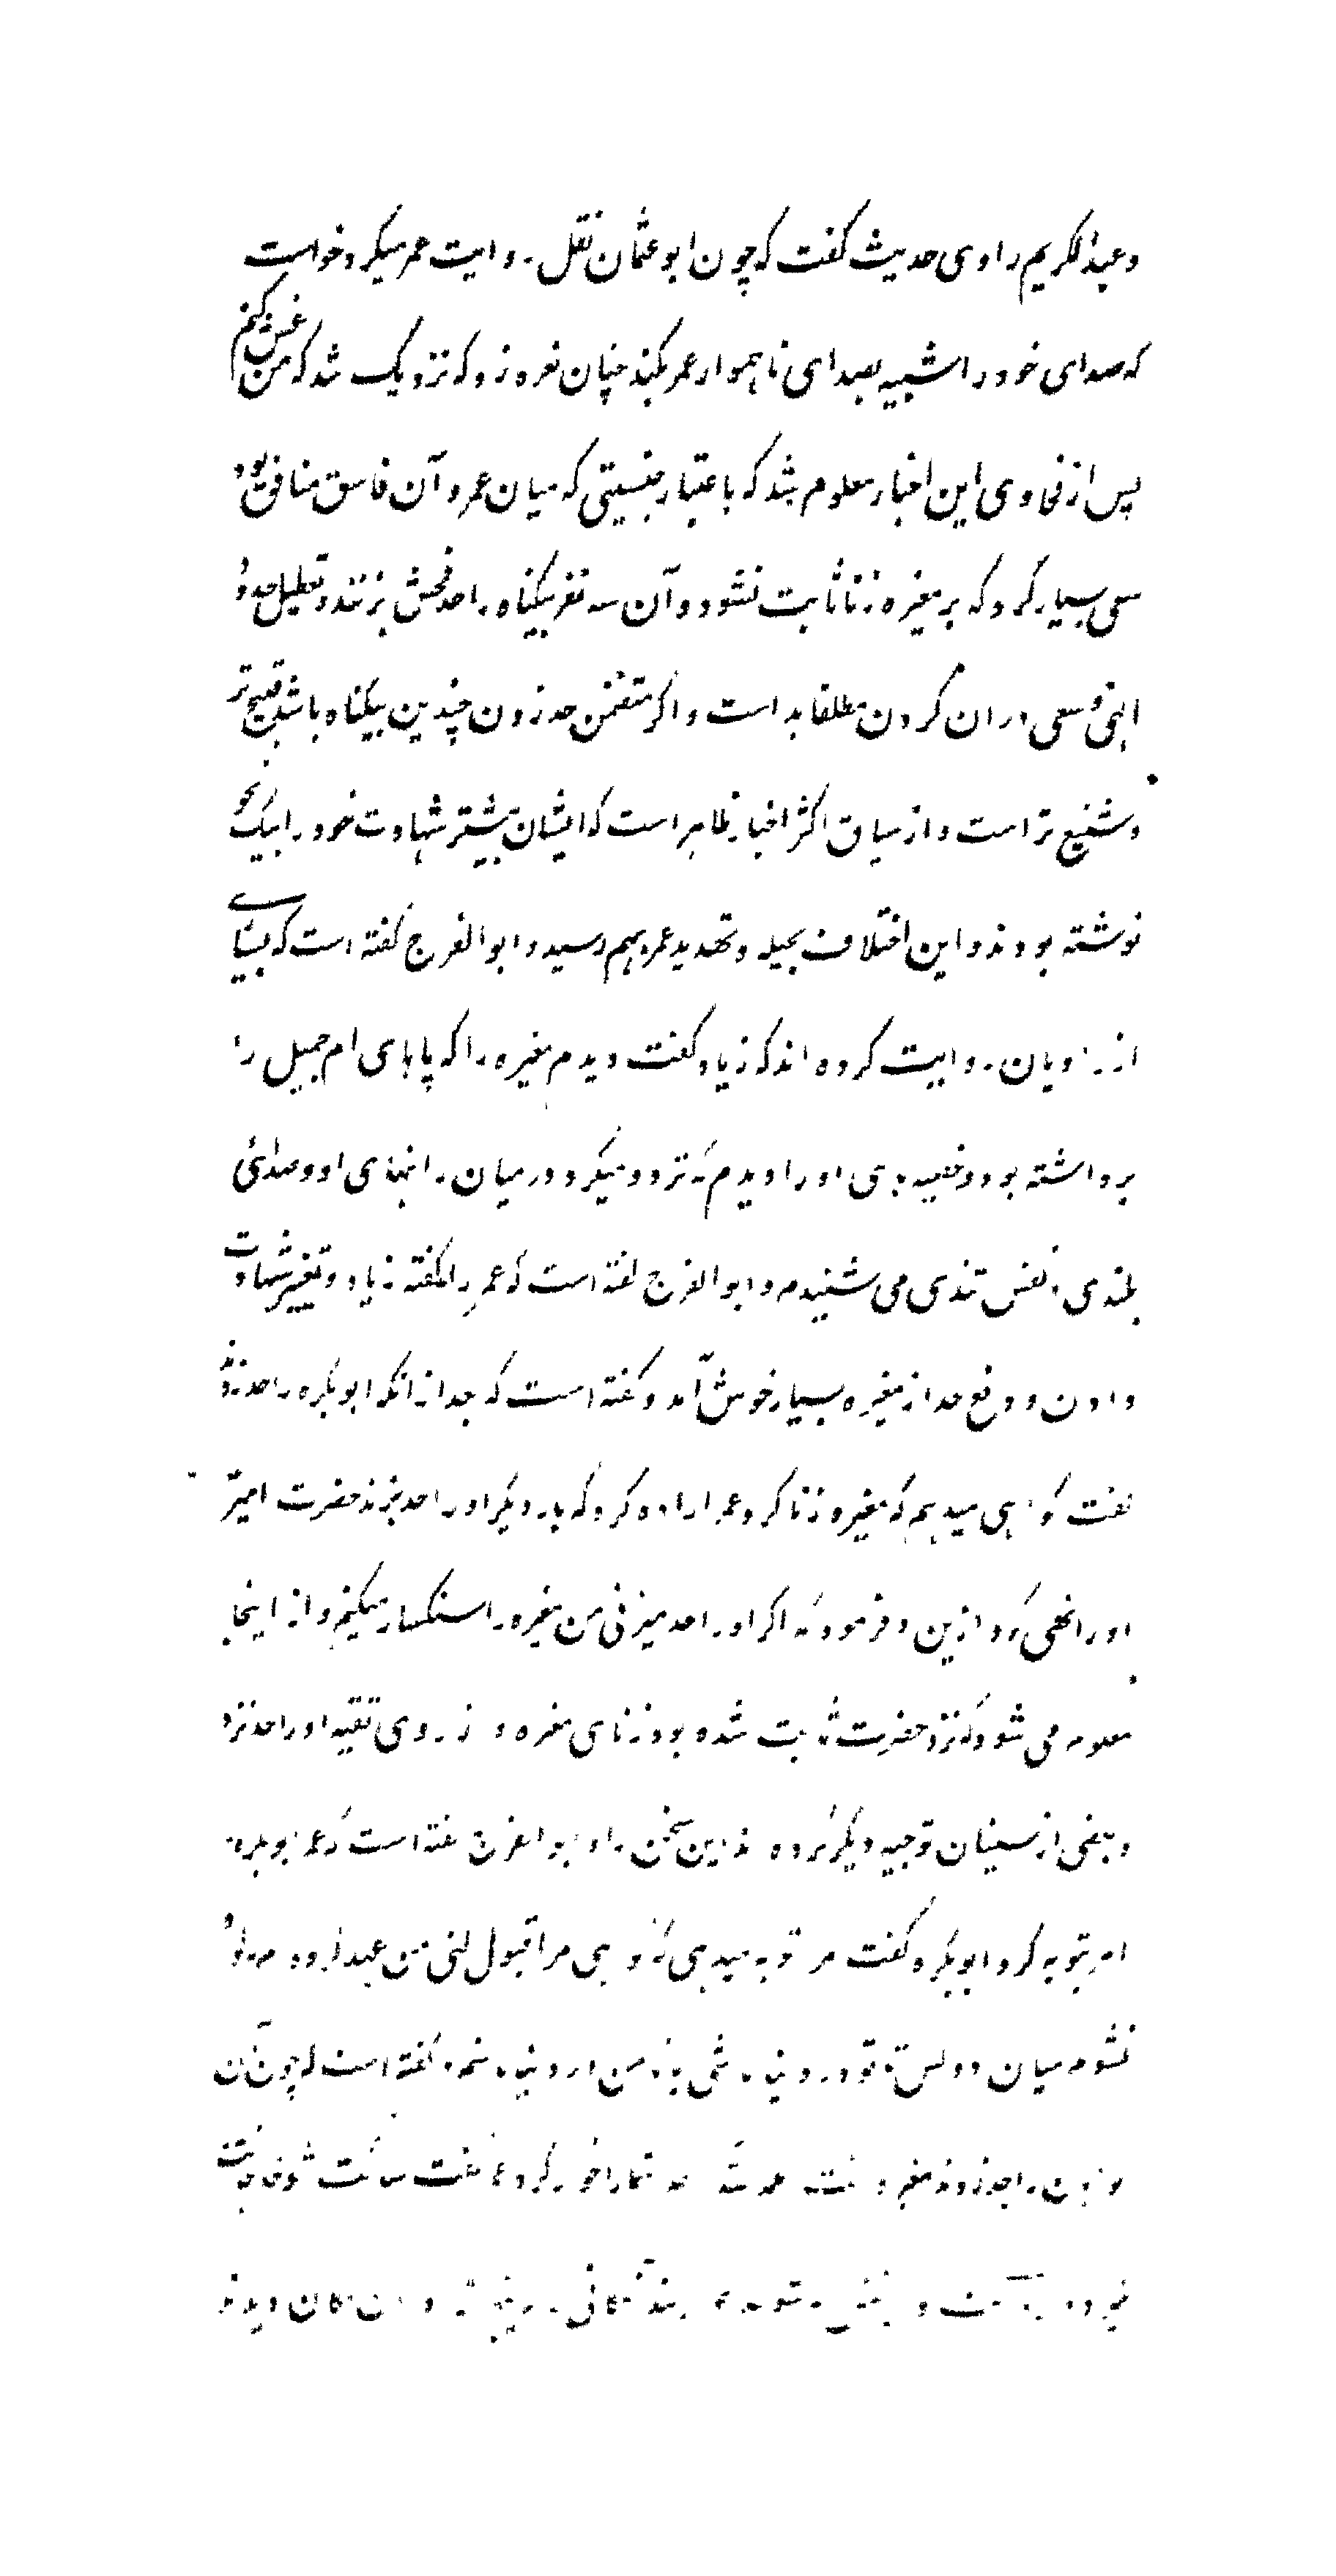 و عبد الکریم راوی حدیث گفت که چون ابو عثمان نقل روایت عمر میکرد خواست
که صدای خود را شبیه بصدای ناهموار عمر بکند چنان نعره زد که نزدیک شد که من غش کنم
پس از فحاوی این اخبار معلوم شد که باعتبار جنسیتی که میان عمر و آن فاسق منافق بود
سعی بسیار کرد که بر مغیره زنا ثابت نشود و آن سه نفر بیگناه را حد فحش بزنند و تعطیل حدود
الهی و سعی در ان کردن مطلقا بد است و اگر متضمن حد زدن چندین بیگناه باشد قبیح تر
و شنیع تر است و از سیاق اکثر اخبار ظاهر است که ایشان بیشتر شهادت خود را بیک نحو
نوشته بودند و این اختلاف بحیله و تهدید عمر بهم رسید و ابو الفرج گفته است که بسیاری
از راویان روایت کرده اند که زیاد گفت دیدم مغیره را که پاهای ام جمیل را
برداشته بود و خصیه های او را دیدم که تردد میکرد در میان رانهای او و صدای
بلندی و نفس تندی می شنیدم و ابو الفرج گفته است که عمر را گفته زیاد و تغییر شهادت
دادن و دفع حد از مغیره بسیار خوش آمد و گفته است که بعد از انکه ابو بکره را حد زدند
گفت گواهی میدهم که مغیره زنا کرد عمر اراده کرد که بار دیگر او را حد بزند حضرت امیر
او را نهی کرد ازین و فرمود که اگر او را حد میزنی من مغیره را سنگسار میکنم و از اینجا
معلوم می شود که نزد حضرت ثابت شده بود زنای مغیره و از روی تقیه او را حد نزد
و بعضی از سنیان توجیه دیگر کرده اند این سخن را و ابو الفرج گفته است که عمر ابو بکره را
امر بتوبه کرد ابو بکره گفت مرا توبه میدهی که گواهی مرا قبول کنی من عهد کردم که گواه
نشوم میان دو کس تا تو در دنیا باشی یا من در دنیا باشم و گفته است که چون آن
گواهان را حد زدند مغیره گفت حمد شما را خوار کرد عمر گفت ساکت شو خدا